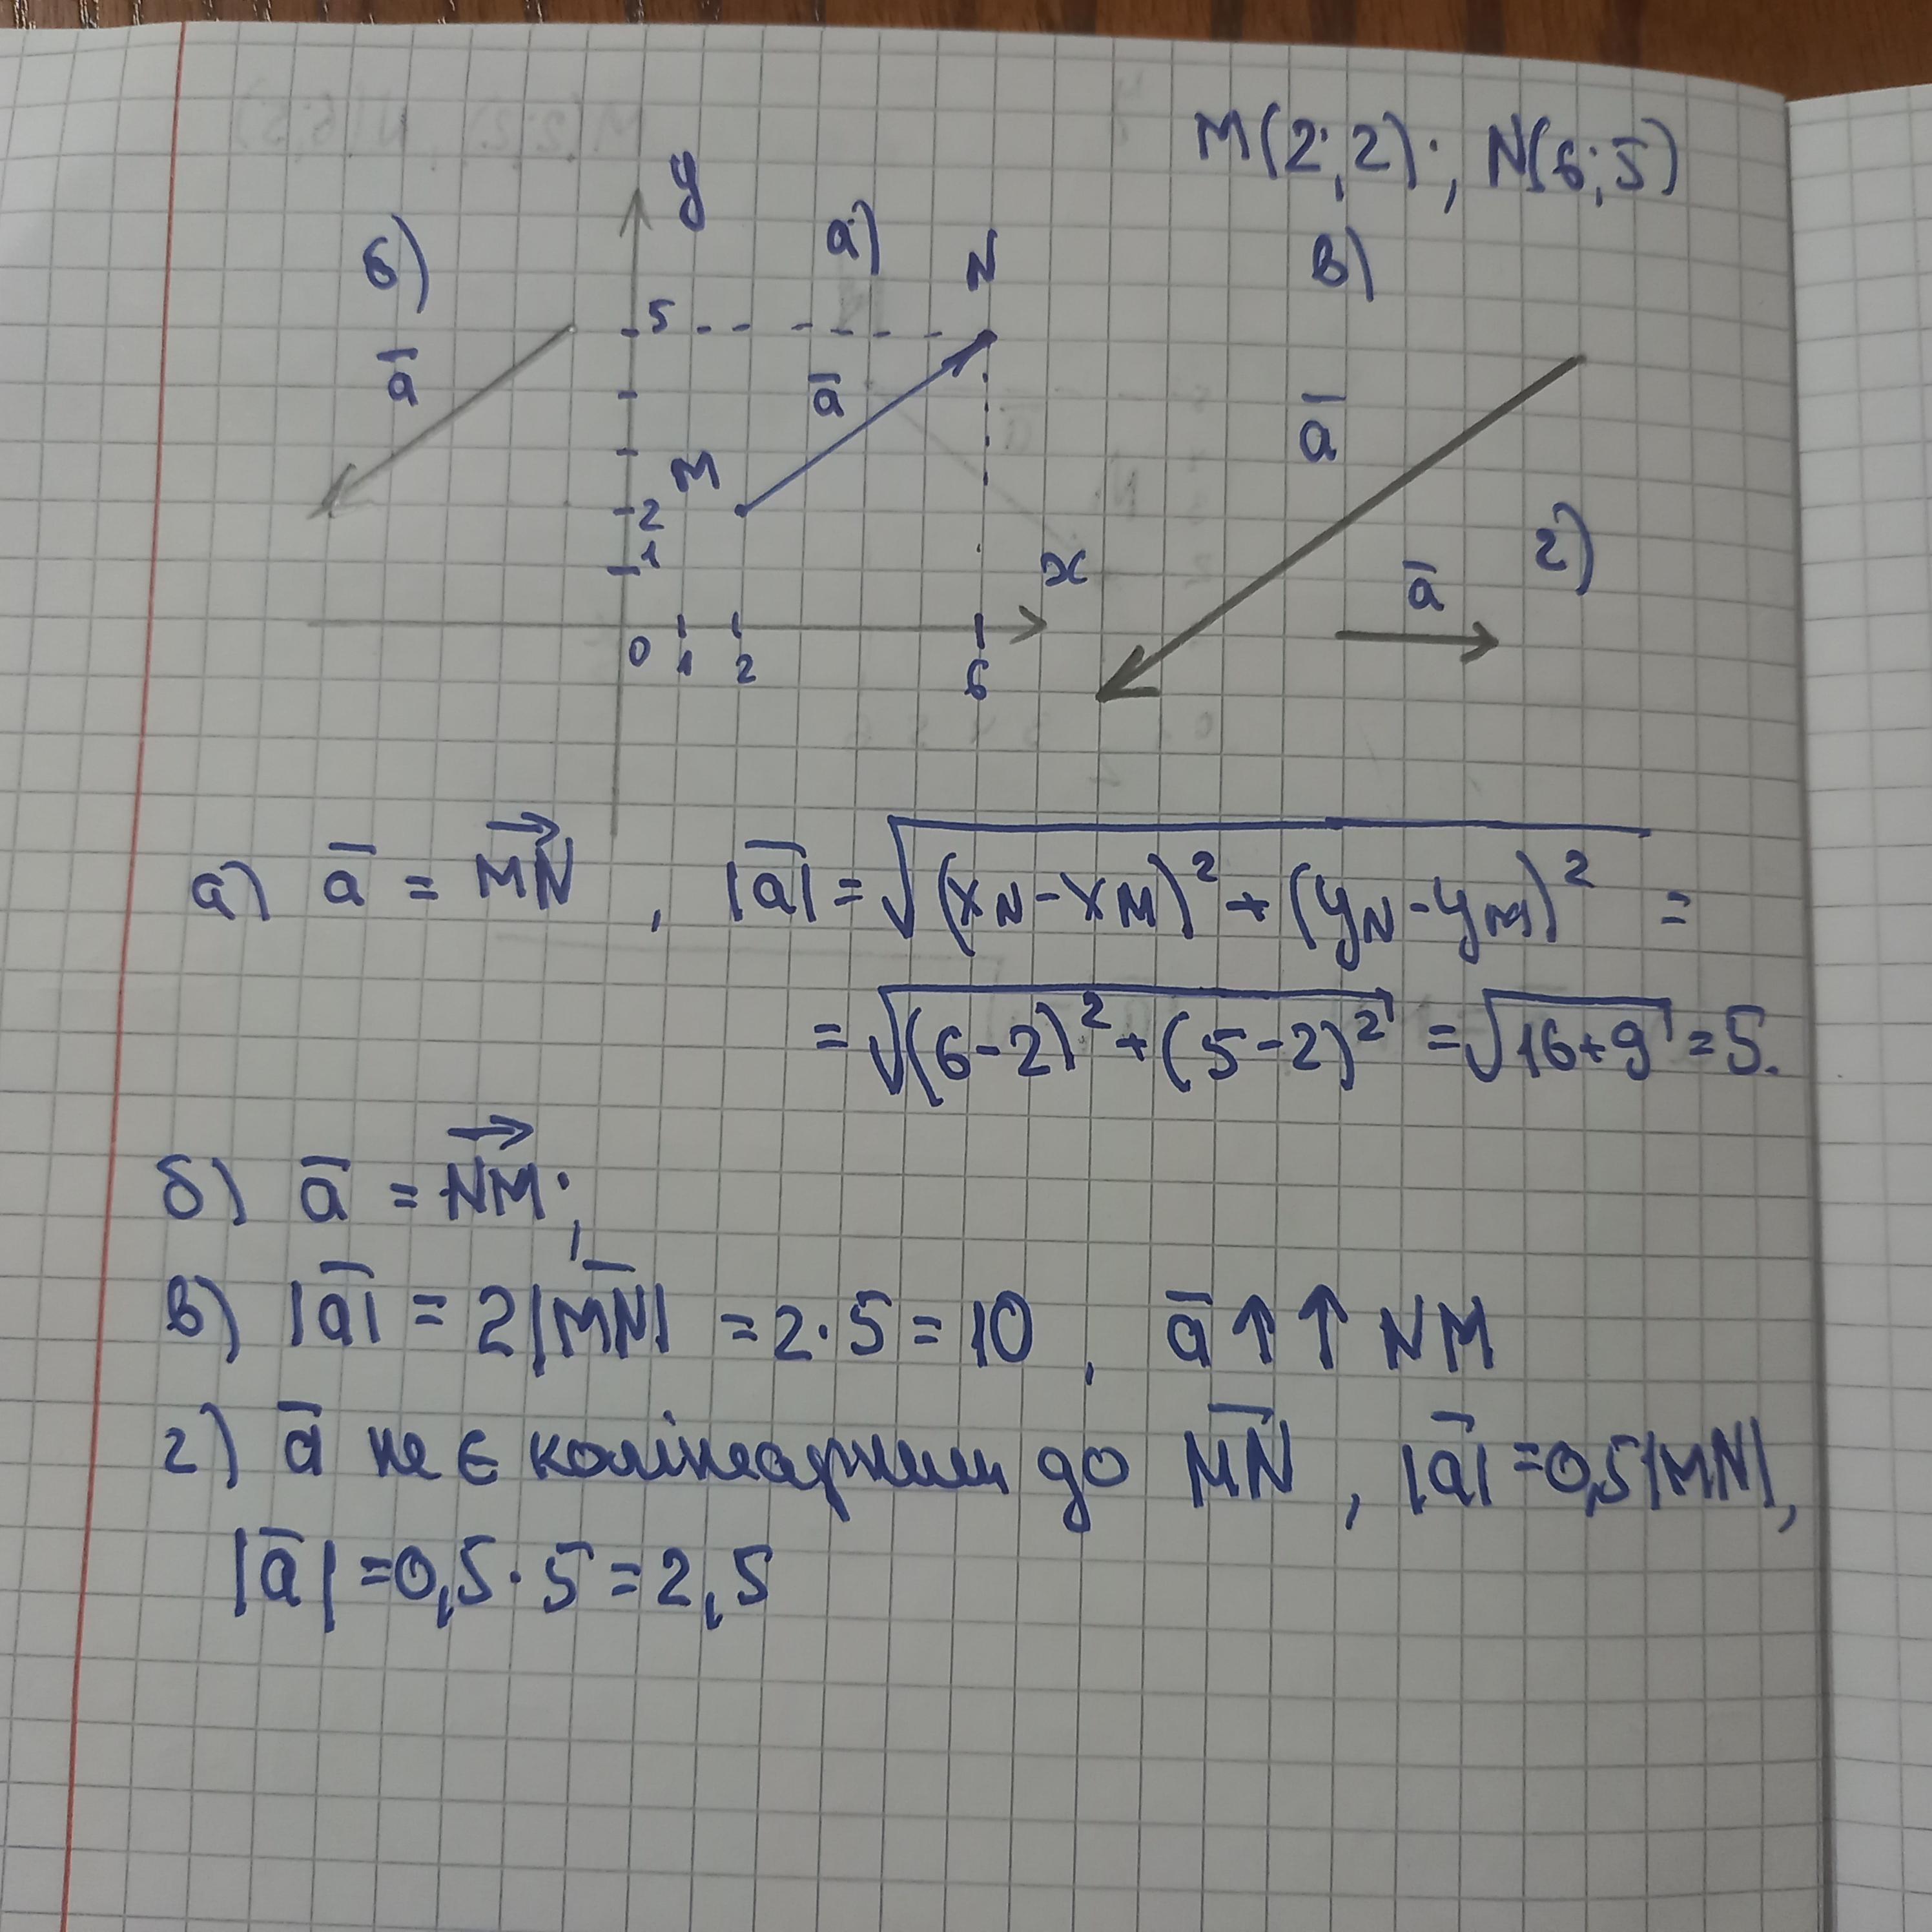 M(2;2); N(6;5)
y
б)
а)
N
в)
5
a̅
a̅
a̅
M
2
г)
1
x
a̅
0 1 2 6
а) a̅ = M⃗N⃗, |a̅| = √((xN - xM)² + (yN - yM)²) =
= √((6-2)² + (5-2)²) = √(16+9) = 5.
б) a̅ = N⃗M⃗;
в) |a̅| = 2|M̅N̅| = 2·5 = 10, a̅ ↑↑ NM
г) a̅ не є колінеарним до M̅N̅, |a̅| = 0,5|MN|,
|a̅| = 0,5·5 = 2,5